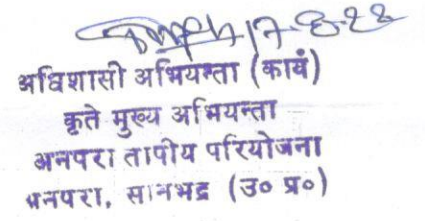 17-8-22
अधिशासी अभियन्ता (कार्य)
कृते मुख्य अभियन्ता
अनपरा तापीय परियोजना
अनपरा, सोनभद्र (उ० प्र०)